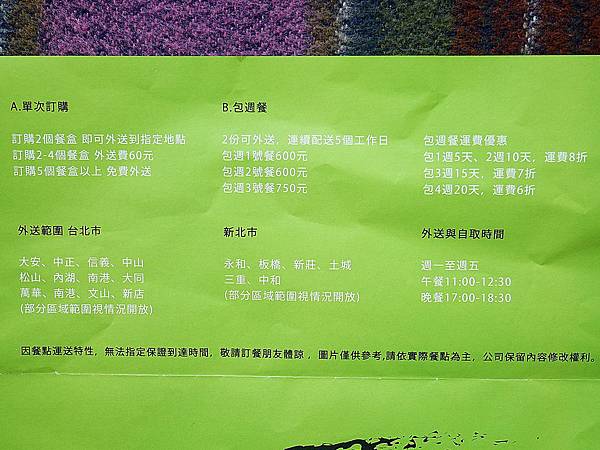 A.單次訂購
訂購2個餐盒 即可外送到指定地點
訂購2-4個餐盒 外送費60元
訂購5個餐盒以上 免費外送
B.包週餐
2份可外送，連續配送5個工作日
包週1號餐600元
包週2號餐600元
包週3號餐750元
包週餐運費優惠
包1週5天、2週10天，運費8折
包3週15天，運費7折
包4週20天，運費6折
外送範圍 台北市
大安、中正、信義、中山
松山、內湖、南港、大同
萬華、南港、文山、新店
(部分區域範圍視情況開放)
新北市
永和、板橋、新莊、土城
三重、中和
(部分區域範圍視情況開放)
外送與自取時間
週一至週五
午餐11:00-12:30
晚餐17:00-18:30
因餐點運送特性，無法指定保證到達時間，敬請訂餐朋友體諒，圖片僅供參考,請依實際餐點為主，公司保留內容修改權利。